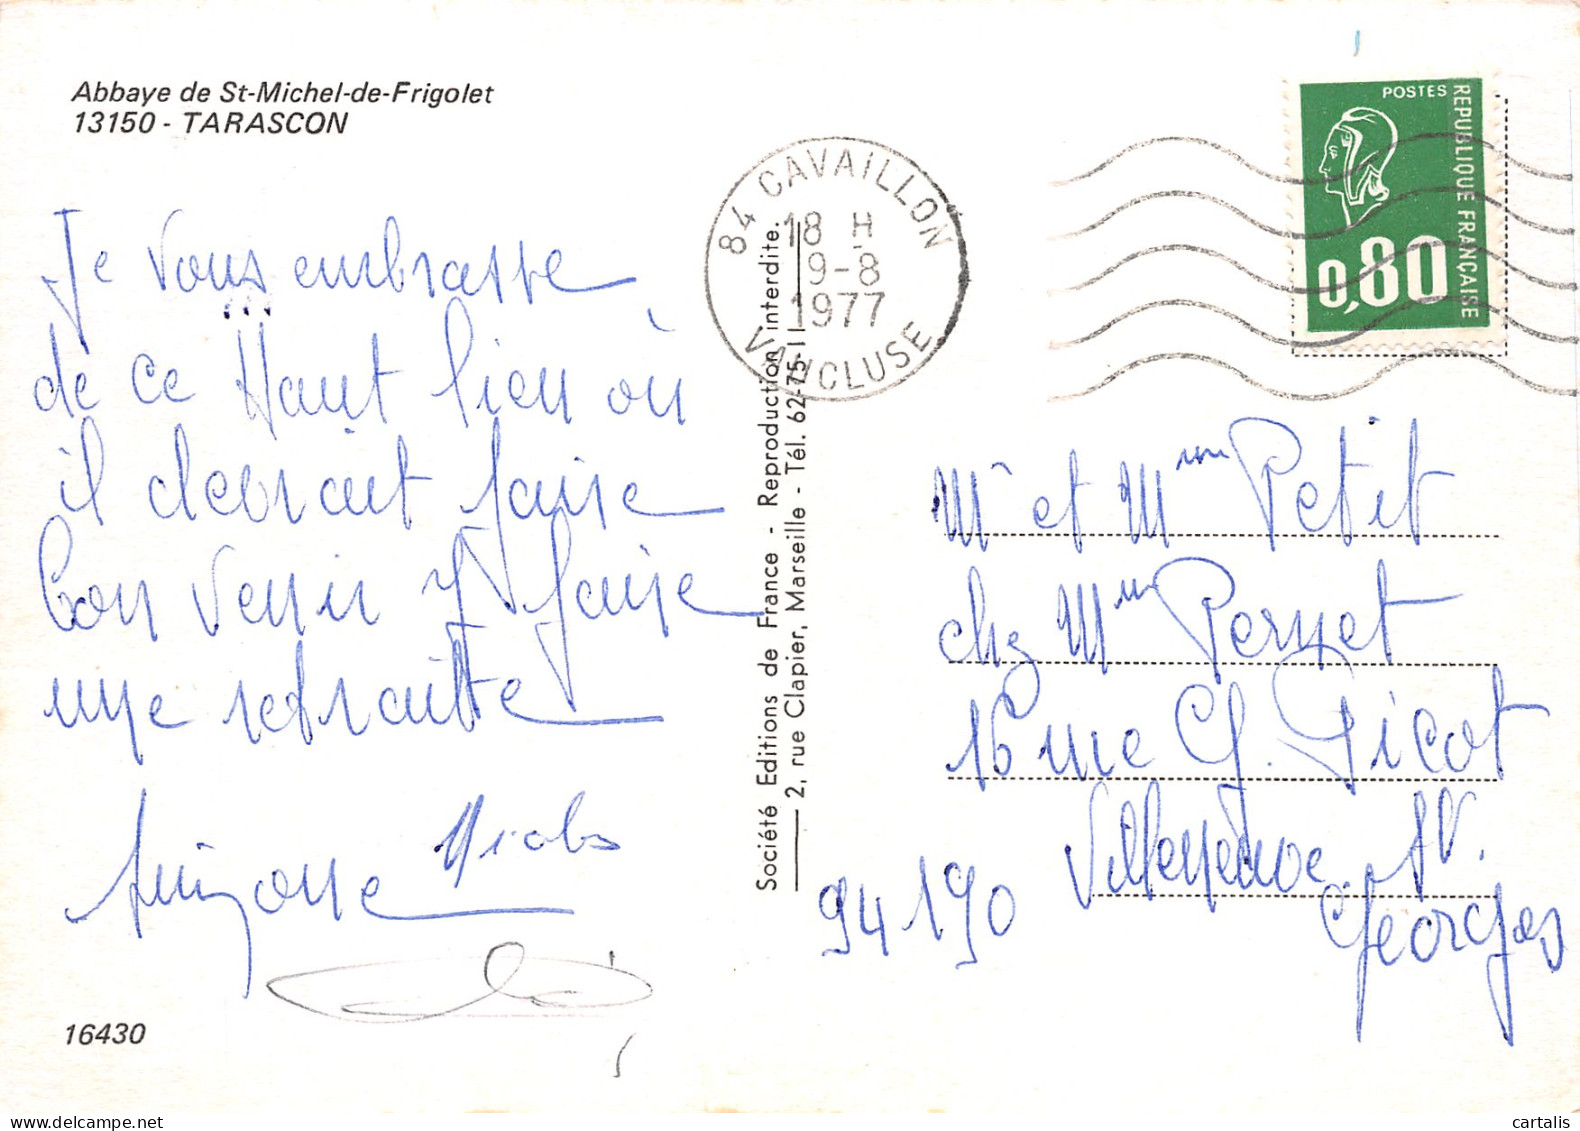 Abbaye de St-Michel-de-Frigolet
13150 - TARASCON
Je vous embrasse
de ce Haut lieu où
il devrait faire
bon venir y faire
une retraite
Suzanne
16430
Société Editions de France - Reproduction interdite.
2, rue Clapier, Marseille - Tél. 62-75-11
84 CAVAILLON
18 H
9-8
1977
VAUCLUSE
POSTES
REPUBLIQUE FRANÇAISE
0,80
Mr et Mme Petit
chez Mme Pernet
16 rue Ch. Picot
Villeneuve St.
94190 Georges
cartalis